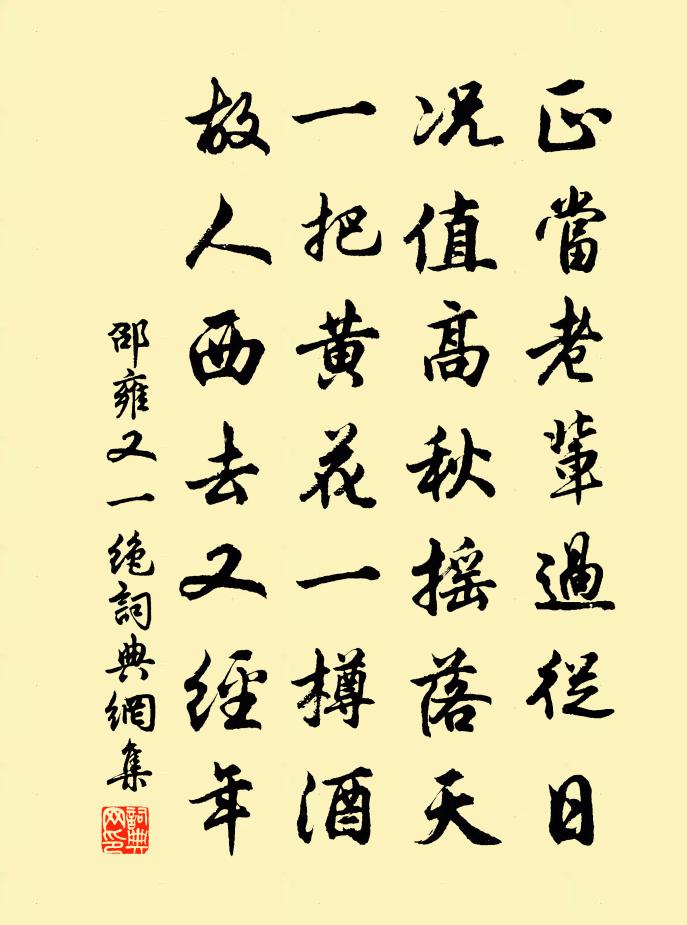 正當老輩過從日
况值高秋摇落天
一把黄花一樽酒
故人西去又經年
邵雍又一絶詞典網集
詞典網印